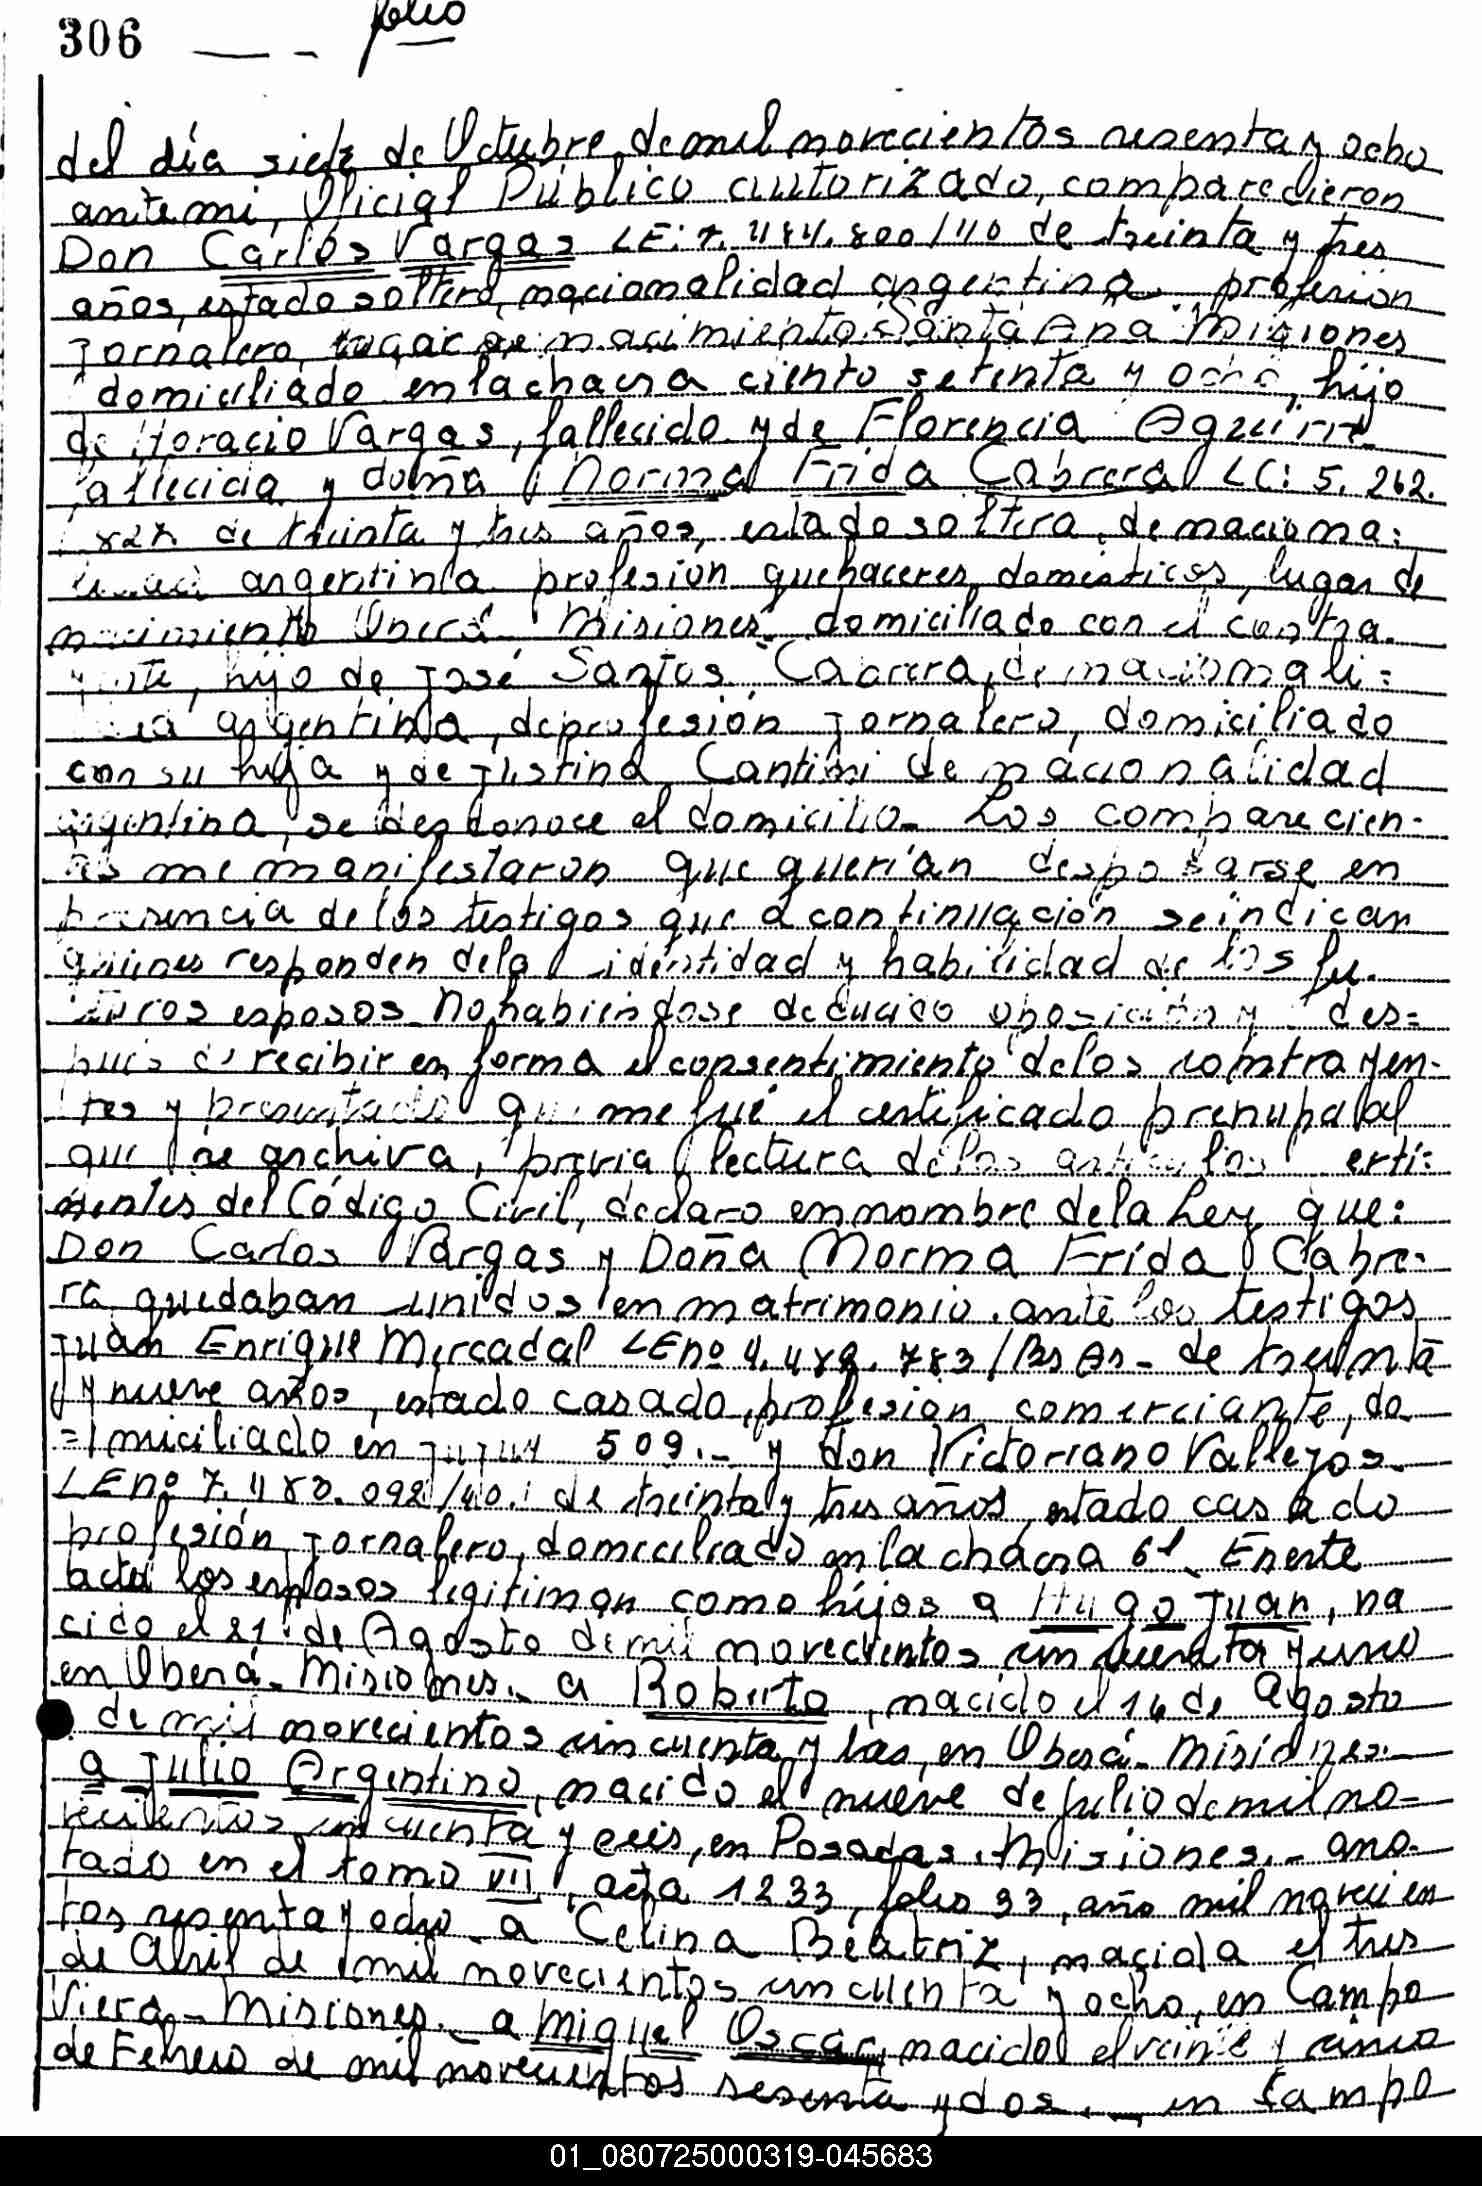 306 folio
del día siete de Octubre, de mil novecientos sesenta y ocho
ante mi, Oficial Público autorizado, comparecieron
Don Carlos Vargas LE: 7.484.800/40 de treinta y tres
años, estado soltero, nacionalidad argentina profesión
Jornalero, lugar de nacimiento Santa Ana Misiones
domiciliado en la chacra ciento setenta y ocho, hijo
de Horacio Vargas, fallecido y de Florencia Aguirre
allecida y doña Norma Frida Cabrera LC: 5.262.
827 de treinta y tres años, estado soltera, de naciona:
argentina profesión quehaceres domésticos, lugar de
nacimiento Oberá Misiones domiciliado con el contra.
yente, hijo de José Santos Cabrera, de nacionali=
argentina, de profesión Jornalero, domiciliado
con su hija y de Justina de nacionalidad
argentina, se desconoce el domicilio. Los comparecien-
tes me manifestaron que querían desposarse en
presencia de los testigos que a continuación se indican
quienes responden de la identidad y habilidad de los fu.
turos esposos. No habiéndose deducido oposición y des=
pués de recibir en forma el consentimiento de los contrayen-
tes y presentado que me fué el certificado prenupcial
que se archiva, previa lectura de los artículos erti=
nentes del Código Civil, declaro en nombre de la Ley que:
Don Carlos Vargas y Doña Norma Frida Cabre-
ra quedaban unidos en matrimonio. ante los testigos
Juan Enrique Mercadal LE nº 4.489.783/Bs As- de treinta
y nueve años, estado casado, profesión comerciante, do
=miciliado en Jujuy 509.- y don Victoriano Vallejos.
LE nº 7.483.092/40. de treinta y tres años, estado casado
profesión Jornalero, domiciliado en la chacra 61. En este
acto los esposos legitiman como hijos a Hugo Juan, na
cido el 21 de Agosto de mil novecientos cincuenta y uno
en Oberá- Misiones.- a Roberto, nacido el 14 de Agosto
de mil novecientos cincuenta y tres, en Oberá- Misiones.-
a Julio Argentino, nacido el nueve de Julio de mil no-
vecientos cincuenta y seis, en Posadas. Misiones.- ano-
tado en el tomo VII, acta 1233, folio 33, año mil novecien
tos sesenta y ocho a Celina Beatriz, nacida el tres
de Abril de mil novecientos cincuenta y ocho, en Campo
Viera- Misiones.- a Miguel Oscar, nacido el veinte y cinco
de Febrero de mil novecientos sesenta y dos.- en Campo
01_080725000319-045683